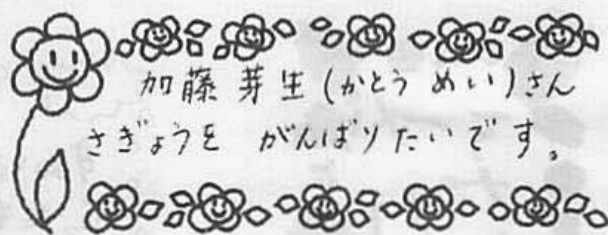 加藤芽生(かとう めい)さん
さぎょうを がんばりたいです。